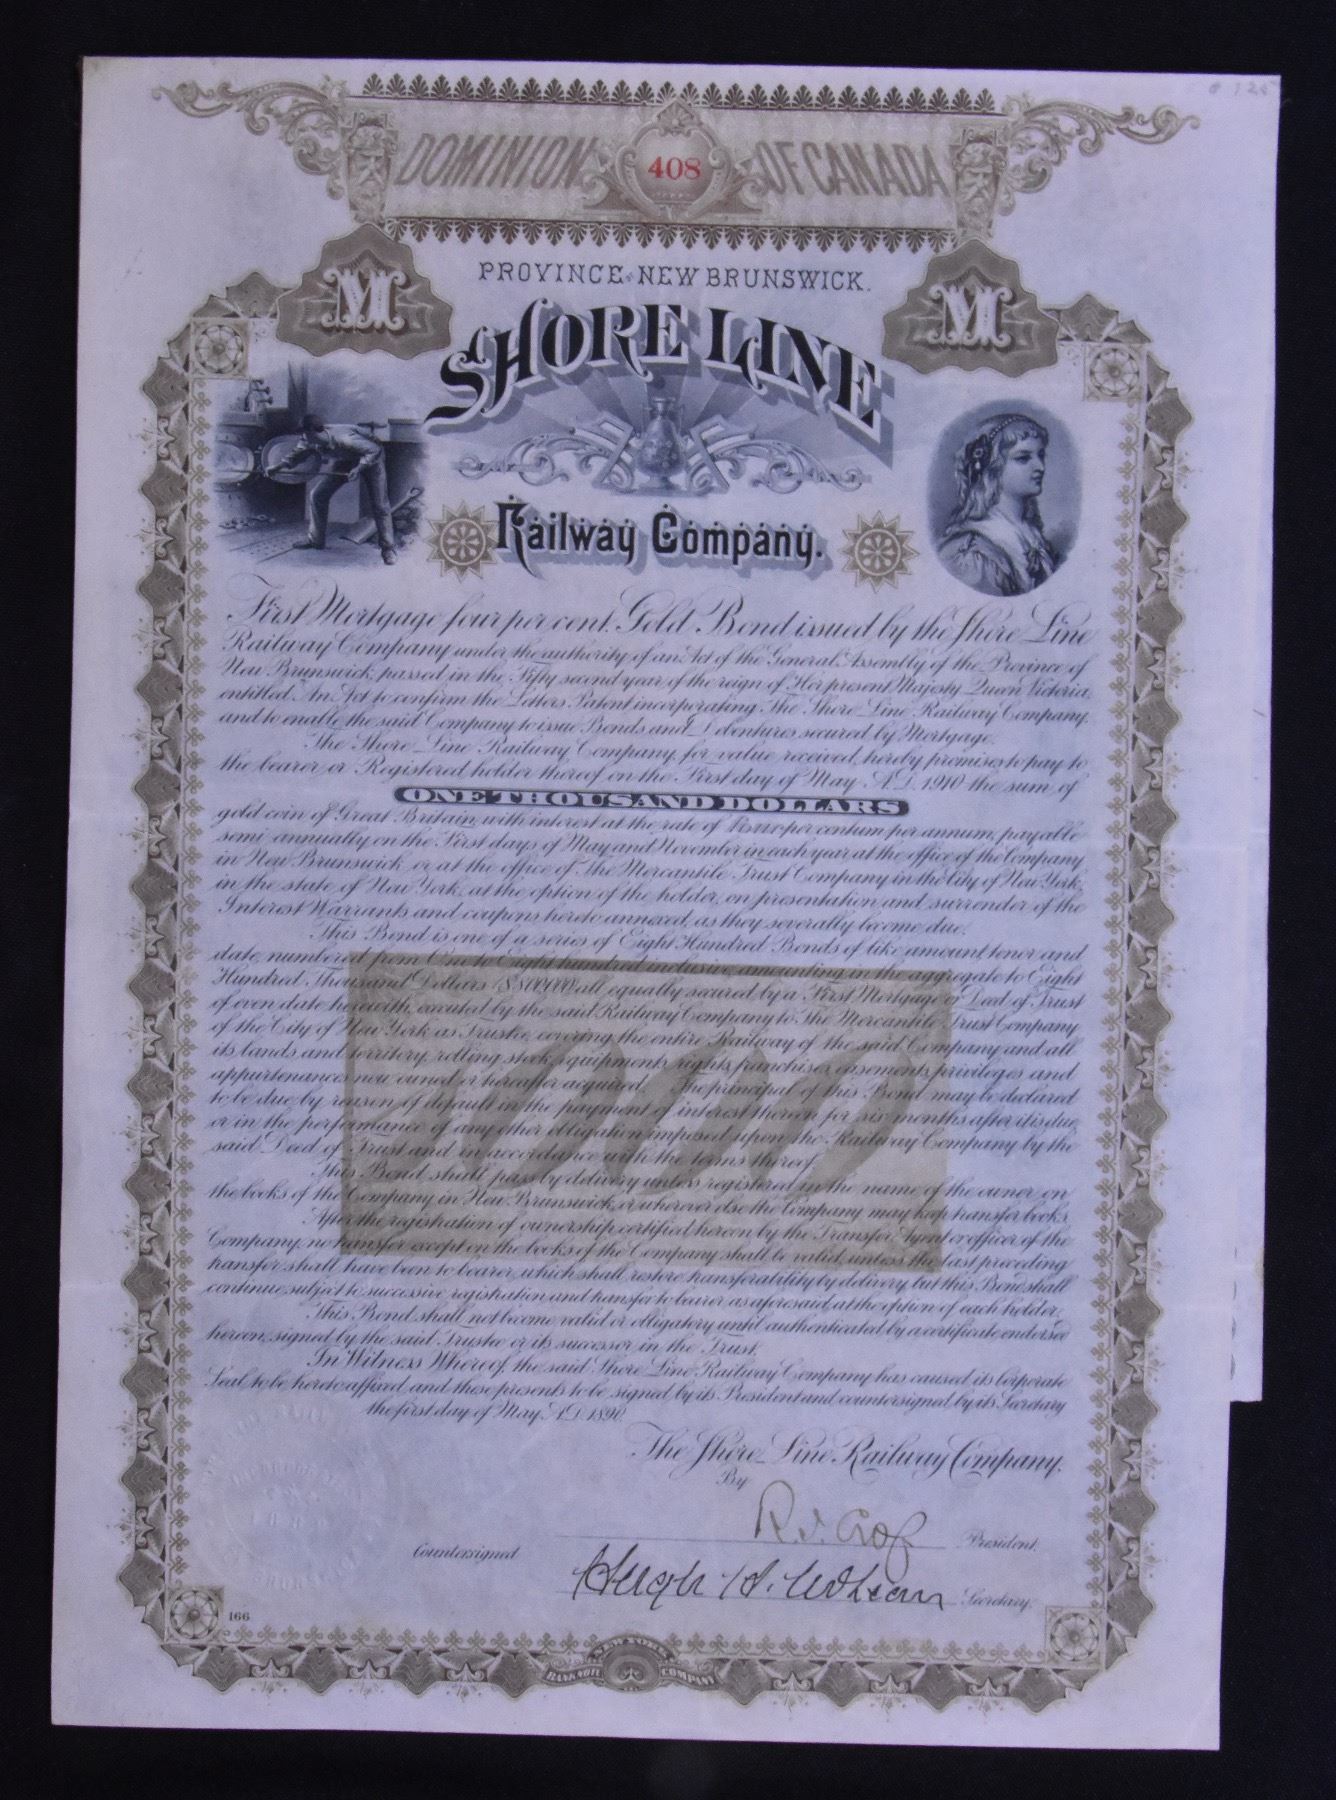 $ 125
DOMINION 408 OF CANADA
PROVINCE OF NEW BRUNSWICK.
M M
SHORE LINE
Railway Company.
First Mortgage four per cent. Gold Bond issued by the Shore Line
Railway Company under the authority of an Act of the General Assembly of the Province of
New Brunswick, passed in the Fifty second year of the reign of Her present Majesty Queen Victoria,
entitled, An Act to confirm the Letters Patent incorporating The Shore Line Railway Company,
and to enable the said Company to issue Bonds and Debentures secured by Mortgage.
The Shore Line Railway Company, for value received, hereby promises to pay to
the bearer or Registered holder thereof on the First day of May A.D. 1910 the sum of
ONE THOUSAND DOLLARS
gold coin of Great Britain, with interest at the rate of four per centum per annum, payable
semi-annually on the First days of May and November in each year at the office of the Company
in New Brunswick or at the office of The Mercantile Trust Company in the City of New York,
in the state of New York, at the option of the holder, on presentation and surrender of the
Interest Warrants and coupons hereto annexed, as they severally become due.
This Bond is one of a series of Eight Hundred Bonds of like amount tenor and
date, numbered from One to Eight hundred inclusive, amounting in the aggregate to Eight
Hundred Thousand Dollars ($800,000) all equally secured by a First Mortgage or Deed of Trust
of even date herewith, executed by the said Railway Company to The Mercantile Trust Company
of the City of New York as Trustee, covering the entire Railway of the said Company and all
its lands and territory, rolling stock, equipments, rights, franchises, easements, privileges and
appurtenances now owned or hereafter acquired. The principal of this Bond may be declared
to be due by reason of default in the payment of interest thereon for six months after it is due,
or in the performance of any other obligation imposed upon the Railway Company by the
said Deed of Trust and in accordance with the terms thereof.
This Bond shall pass by delivery unless registered in the name of the owner on
the books of the Company in New Brunswick, or wherever else the Company may keep transfer books.
After the registration of ownership certified hereon by the Transfer Agent or officer of the
Company, no transfer except on the books of the Company shall be valid, unless the last preceding
transfer shall have been to bearer, which shall restore transferability by delivery but this Bond shall
continue subject to successive registration and transfer to bearer as aforesaid, at the option of each holder.
This Bond shall not become valid or obligatory until authenticated by a certificate endorsed
hereon, signed by the said Trustee or its successor in the Trust.
In Witness Whereof, the said Shore Line Railway Company has caused its Corporate
Seal to be hereto affixed, and these presents to be signed by its President and countersigned by its Secretary
the first day of May A.D. 1890.
The Shore Line Railway Company.
By
President.
Countersigned
Hugh H. McLean Secretary.
166
NEW YORK
BANK NOTE COMPANY